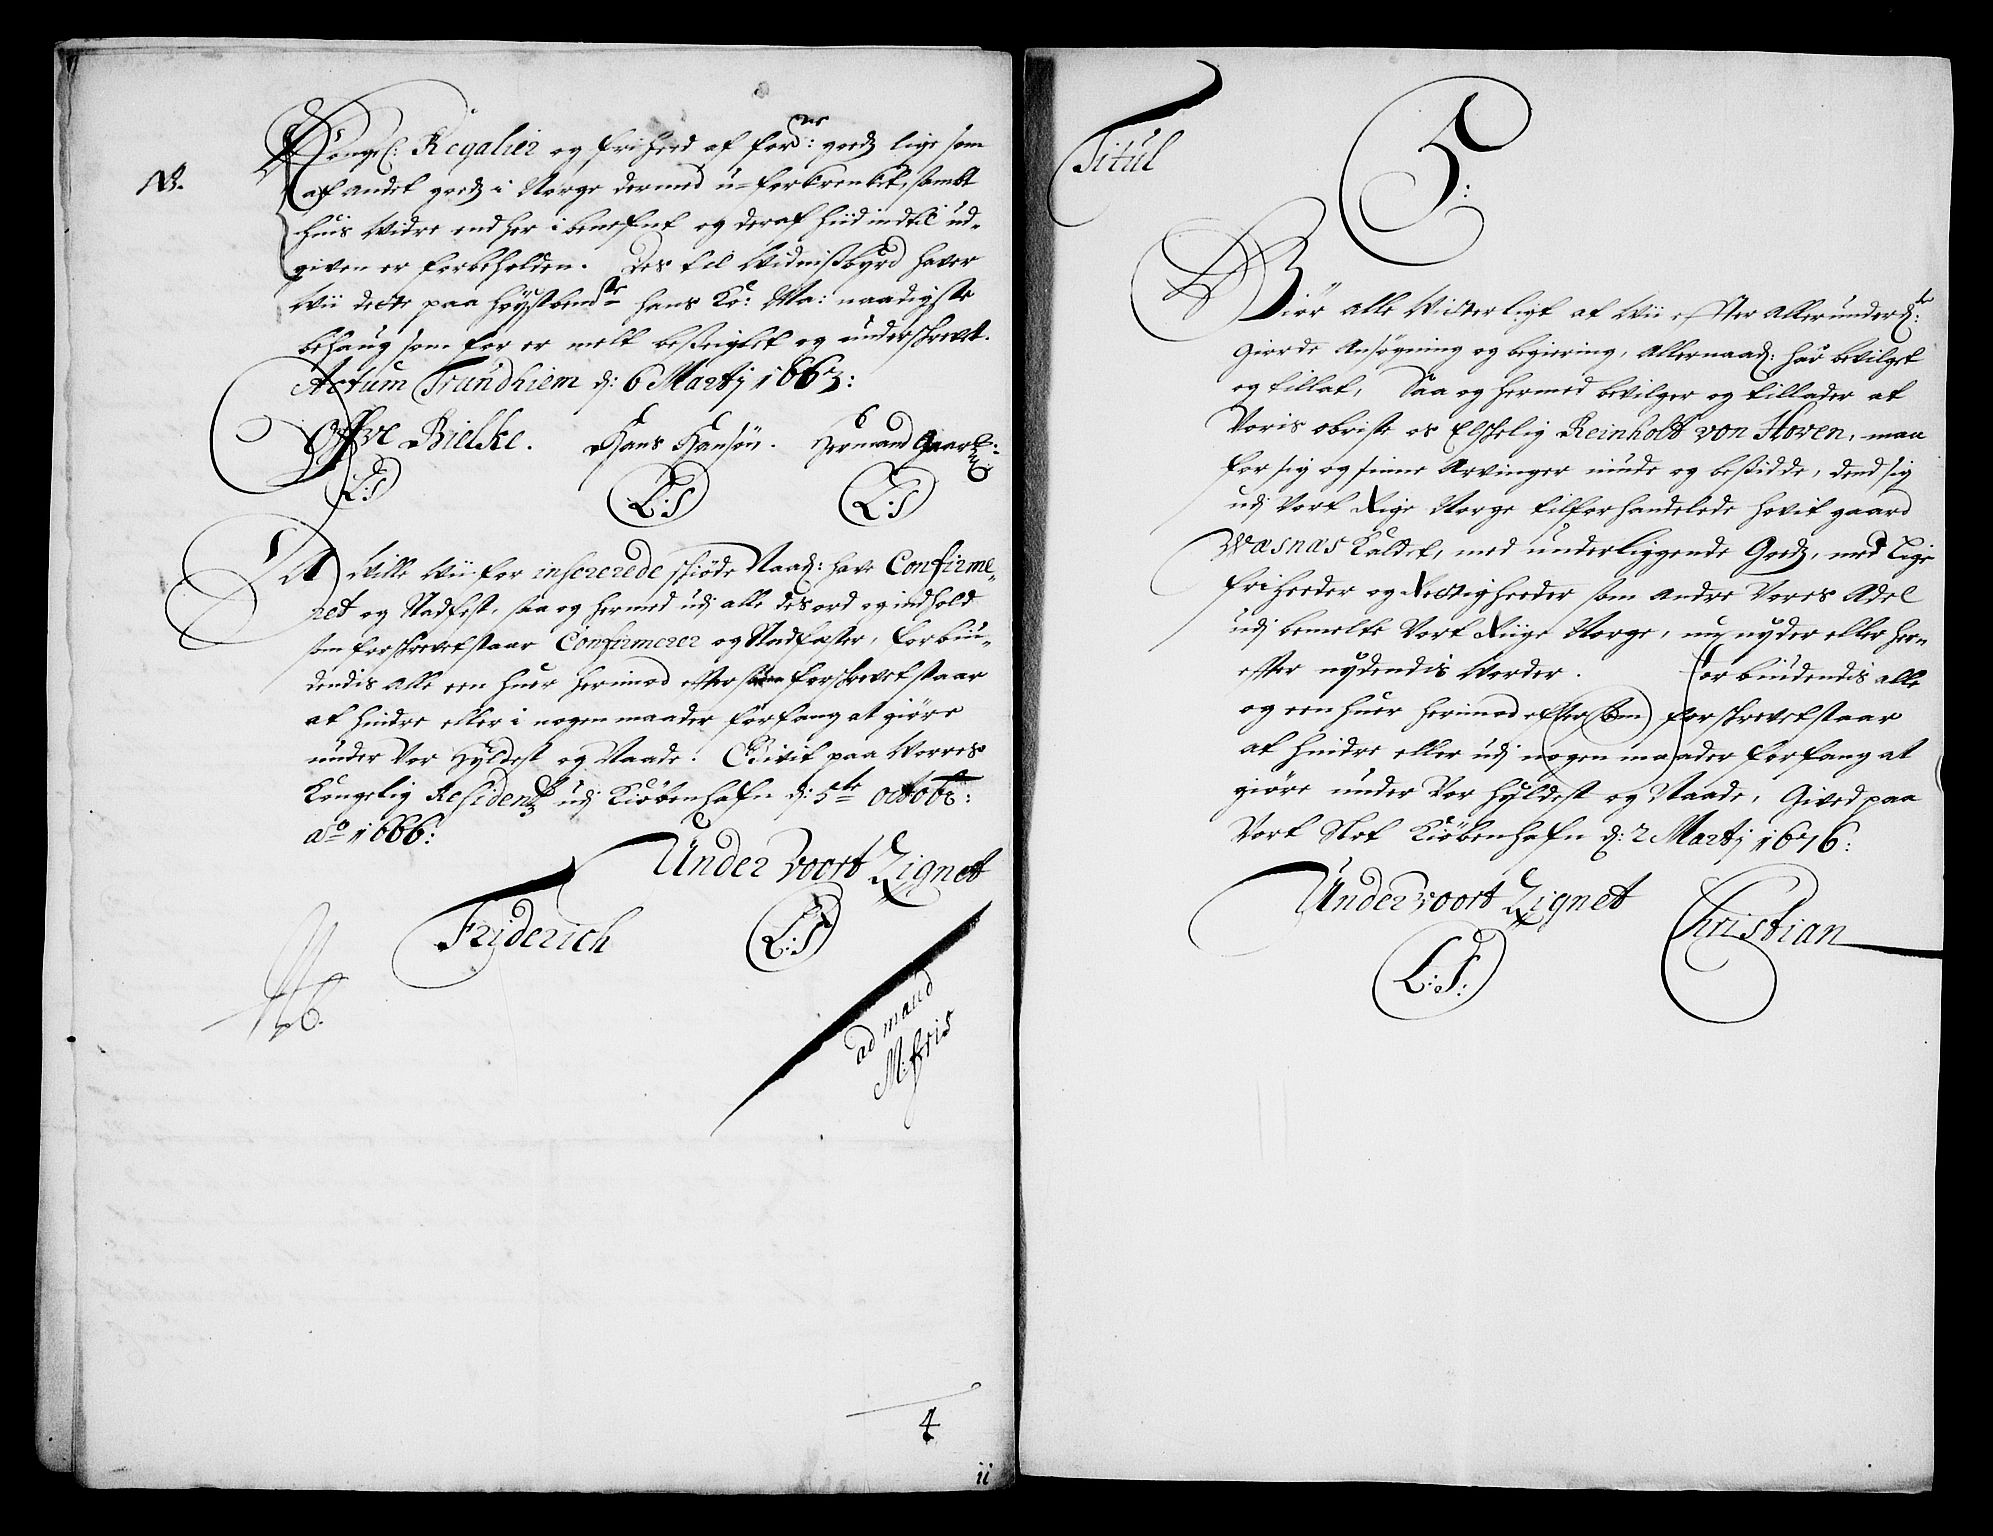 NB.
Kongel: Regalier og friheed af ford:ne godtz lige som
af andet godtz i Norge dermed u-forkrenket, sambt
huis widre end her i benefnt og deraf hiid indtil ud-
given er forbeholden. Des til Widnißbyrd haver
Wii dette paa höystbemte hans Ko: Ma: naadigste
behaug som for er melt beseiglet og underskrevet.
Actum Trundhiem d: 6 Martj 1663:
Offve Bielke. Hans Hansön. Hermand Gaar
L:S L:S L:S
Da Wille Wii for insererede skiöde Naad: have Confirme-
ret og Stadfest, saa og hermed udj alle des ord og indhold
som forskrevet staar Confirmerer og Stadfæster, forbiu-
dendis alle een huer herimod eftersom forskrevet staar
at hindre eller i nogen maader forfang at giöre
under Vor hyldest og Naade. Givit paa Worres
Kongelig Residentz udj Kiöbenhafn d: 5te octobr:
ao 1666:
Under Voort Zignet
Friderich L:S
NB.
ad mand
M: fris
4
ii
Titul
5:
Giör alle Witterligt at Wii efter allerunderd:
giorde Ansögning og begiering, allernaad: har bevilget
og tillat, Saa og hermed bevilger og tillader at
Voris obriste os Elskelig Reinholt von Hoven, maa
for sig og sinne Arvinger niude og besidde, dend sig
udj Vort Rige Norge tilforhandelede hovit gaard
Wasnas kaldet, med underliggende Godtz, med lige
friheeder og Rettigheeder som andre Vores Adel
udj bemelte Vort Riige Norge, nu nyder eller her-
efter nydendis Worder. Forbiudendis alle
og een huer herimod eftersom forskrevet staar
at hindre eller udj nogen maader forfang at
giöre under Vor hyldest og Naade, Gived paa
Vort Slot Kiöbenhafn d: 2 Martj 1676:
Under voort Zignet Christian
L:S: